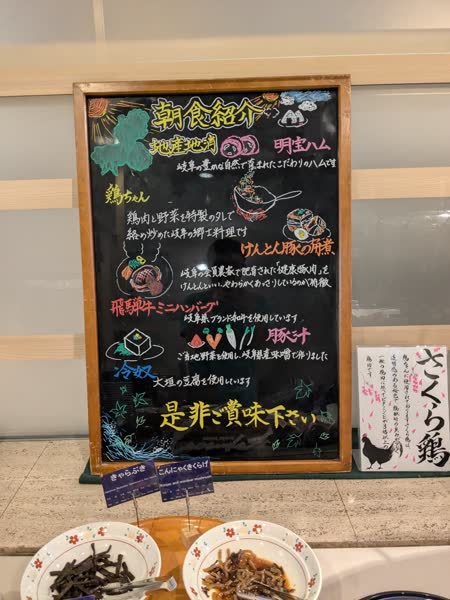 朝食紹介
地産地消
明宝ハム
岐阜の豊かな自然で育まれたこだわりのハムです
鶏ちゃん
鶏肉と野菜を特製のタレで
絡め炒めた岐阜の郷土料理です
けんとん豚の角煮
岐阜の会員農家で肥育された「健康豚肉」を
けんとんといい、やわらかくあっさりしているのが特徴
飛騨牛ミニハンバーグ
岐阜県ブランド和牛を使用しています
豚汁
ご当地野菜を使用し、岐阜県産味噌で作りました
冷奴
大垣の豆腐を使用しています
是非ご賞味下さい
さくら鶏
きゃらぶき
こんにゃくきくらげ